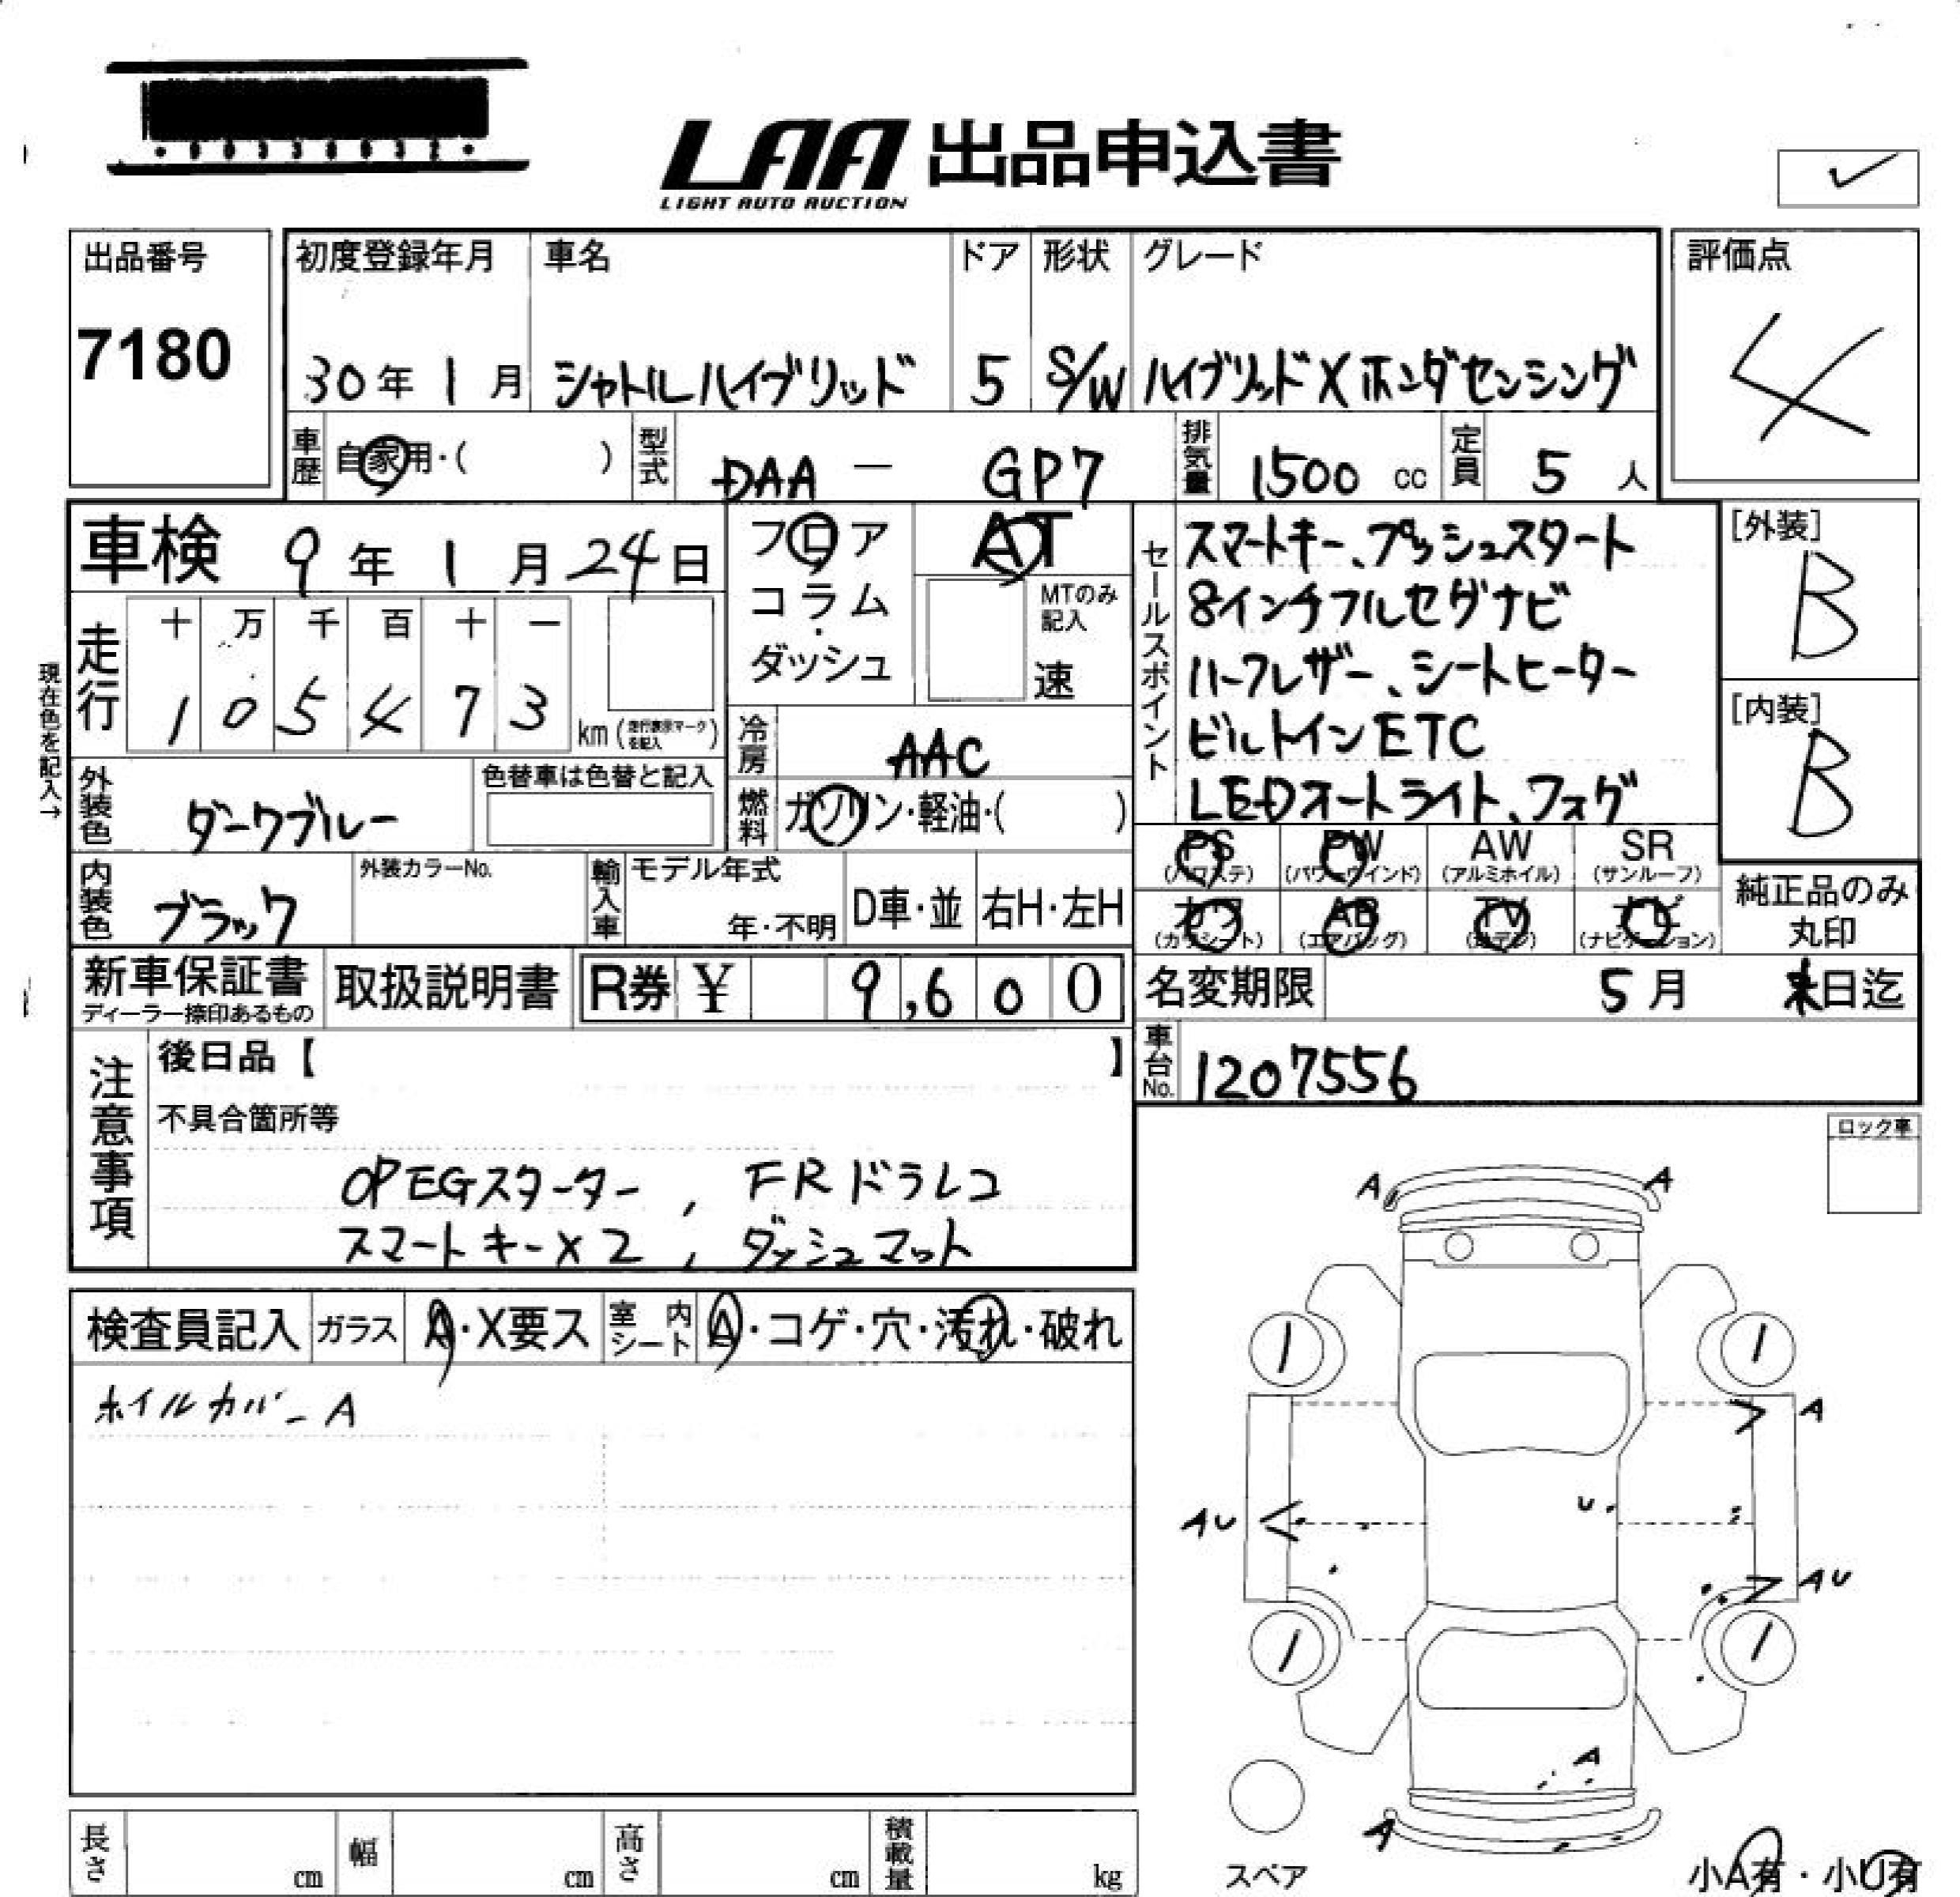 LAA 出品申込書
LIGHT AUTO AUCTION
✓
出品番号
7180
初度登録年月
30年 1月
車名
シャトルハイブリッド
ドア
5
形状
S/W
グレード
ハイブリッドXホンダセンシング
評価点
4
車歴 自家用・( )
型式 DAA - GP7
排気量 1500 cc
定員 5 人
車検 9年 1月 24日
フロア
コラム
・
ダッシュ
AT
MTのみ
記入
速
現在色を記入→
走行
十 万 千 百 十 一
1 0 5 4 7 3 km (走行表示マークを記入)
冷房 AAC
燃料 ガソリン・軽油・( )
外装色 ダークブルー
色替車は色替と記入
内装色 ブラック
外装カラーNo.
輸入車
モデル年式
年・不明
D車・並
右H・左H
セールスポイント
スマートキー、プッシュスタート
8インチフルセグナビ
ハーフレザー、シートヒーター
ビルトインETC
LEDオートライト、フォグ
[外装]
B
[内装]
B
PS (パワステ)
PW (パワーウインド)
AW (アルミホイル)
SR (サンルーフ)
カワ (カワシート)
AB (エアバッグ)
TV
ナビ (ナビゲーション)
純正品のみ
丸印
新車保証書
ディーラー捺印あるもの
取扱説明書
R券 ¥ 9,600
名変期限 5月 末日迄
車台No. 1207556
注意事項
後日品【 】
不具合箇所等
OPEGスターター, FRドラレコ
スマートキーX2, ダッシュマット
ロック車
検査員記入
ガラス A・X要ス
室内シート A・コゲ・穴・汚れ・破れ
ホイルカバーA
A
A
1
1
A
U
AU
AU
1
1
A
A
スペア
小A有・小U有
長さ cm
幅 cm
高さ cm
積載量 kg